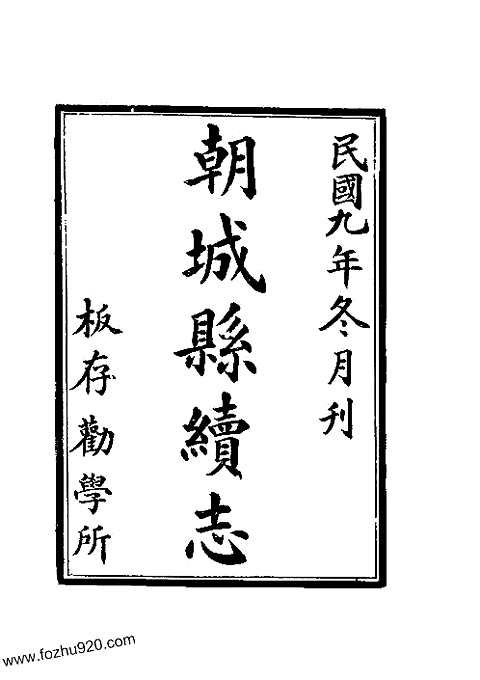 民國九年冬月刊
朝城縣續志
板存勸學所
www.fozhu920.com